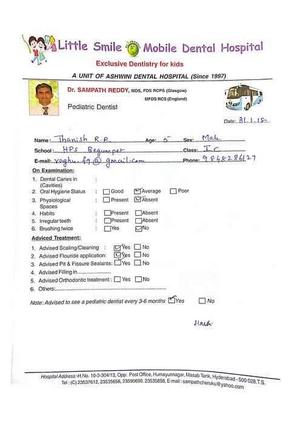 Little Smile Mobile Dental Hospital
Exclusive Dentistry for kids
A UNIT OF ASHWINI DENTAL HOSPITAL (Since 1997)
Dr. SAMPATH REDDY, MDS, FDS RCPS (Glasgow)
MFDS RCS (England)
Pediatric Dentist
Date: 31.1.18
Name: Thanish R.R. Age: 5 Sex: Male
School: HPS Begumpet Class: I
E-mail: @gmail.com Phone: 9848286127
On Examination:
1. Dental Caries in :
(Cavities)
2. Oral Hygiene Status : Good Average Poor
3. Physiological : Present Absent
Spaces
4. Habits : Present Absent
5. Irregular teeth : Present Absent
6. Brushing twice : Yes No
Adviced Treatment:
1. Advised Scaling/Cleaning : Yes No
2. Advised Flouride application: Yes No
3. Advised Pit & Fissure Sealants: Yes No
4. Advised Filling in
5. Advised Orthodontic treatment : Yes No
6. Others:
Note: Advised to see a pediatric dentist every 3-6 months Yes No
Hospital Address: H.No. 10-3-304/13, Opp: Post Office, Humayunnagar, Masab Tank, Hyderabad - 500 028.T.S.
Tel: (C) 23537612, 23535658, 23590690, 23535858, E-mail: